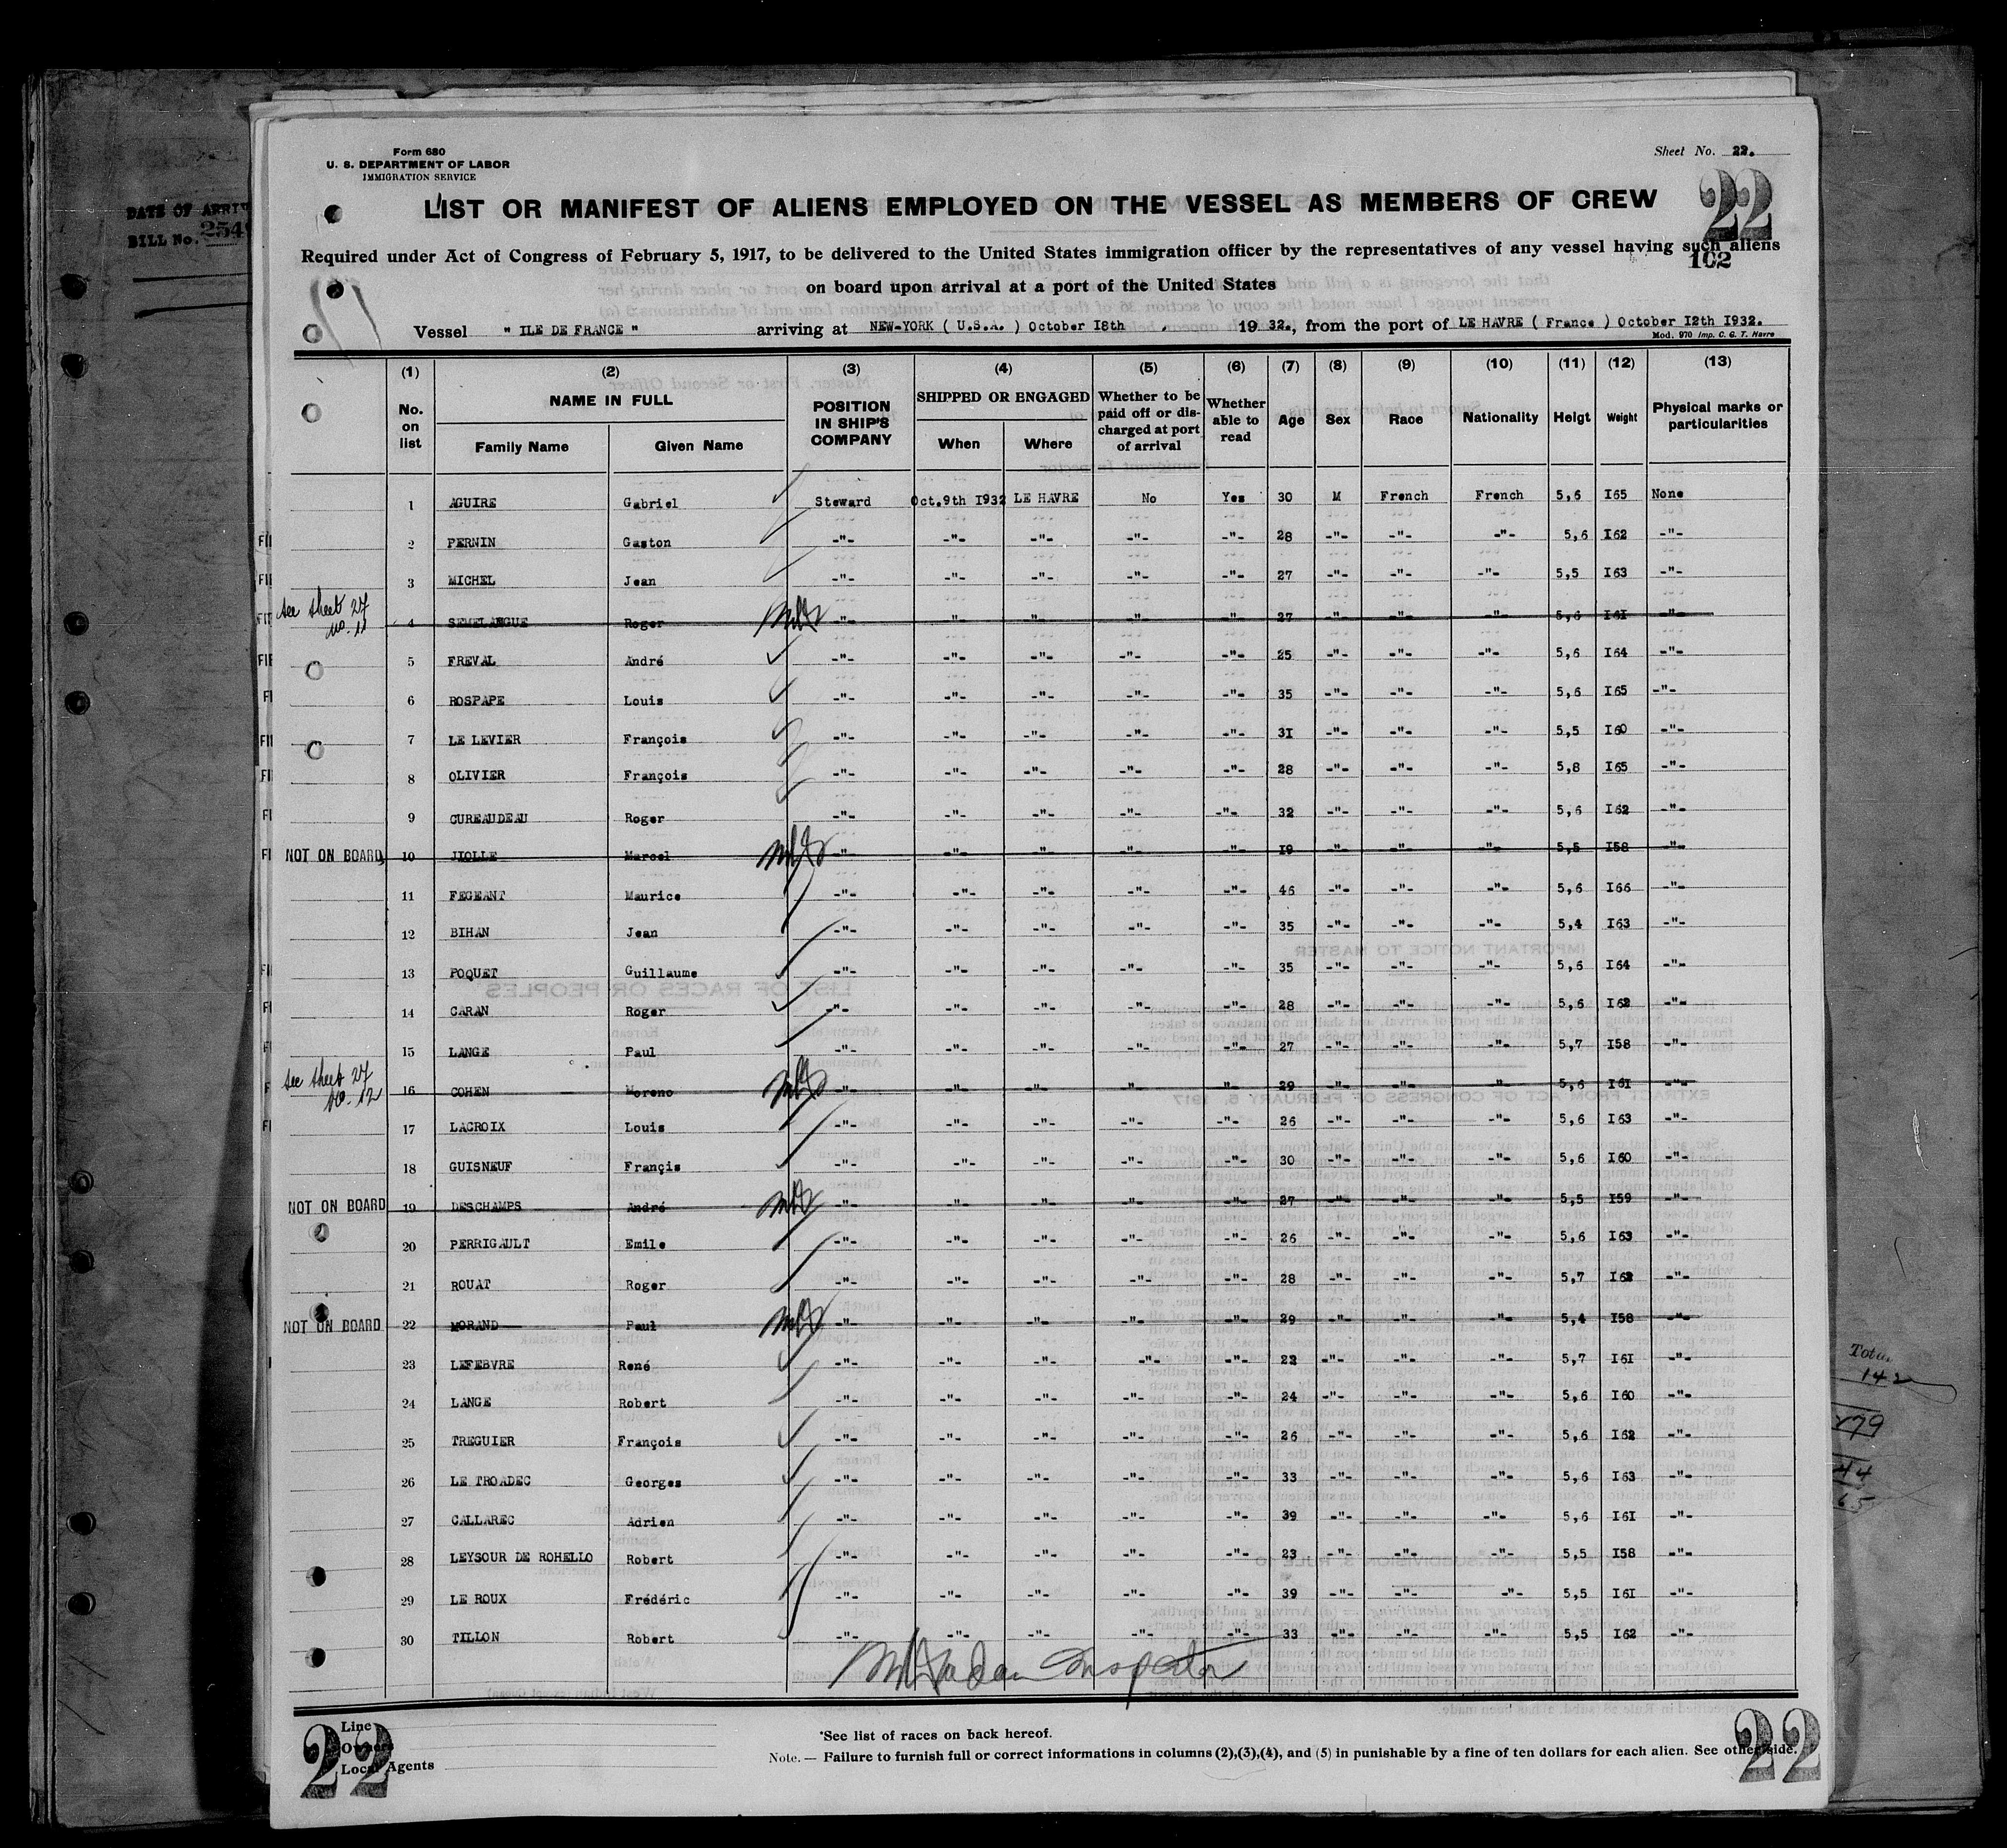 DATE OF ARRIV
BILL No. 254
Form 680
U. S. DEPARTMENT OF LABOR
IMMIGRATION SERVICE
Sheet No. 22.
22
LIST OR MANIFEST OF ALIENS EMPLOYED ON THE VESSEL AS MEMBERS OF CREW
Required under Act of Congress of February 5, 1917, to be delivered to the United States immigration officer by the representatives of any vessel having such aliens
102
on board upon arrival at a port of the United States
Vessel " ILE DE FRANCE " arriving at NEW-YORK ( U.S.A. ) October I8th 19 32., from the port of LE HAVRE ( France ) October I2th I932.
Mod. 970 Imp. C. G. T. Havre
(1) (2) (3) (4) (5) (6) (7) (8) (9) (10) (11) (12) (13)
No. on list NAME IN FULL Family Name Given Name POSITION IN SHIP'S COMPANY SHIPPED OR ENGAGED When Where Whether to be paid off or discharged at port of arrival Whether able to read Age Sex Race Nationality Heigt Weight Physical marks or particularities
1 AGUIRE Gabriel Steward Oct.9th I932 LE HAVRE No Yes 30 M French French 5,6 I65 None
2 PERNIN Gaston -"- -"- -"- -"- -"- 28 -"- -"- -"- 5,6 I62 -"-
3 MICHEL Jean -"- -"- -"- -"- -"- 27 -"- -"- -"- 5,5 I63 -"-
see sheet 27 no. 11
4 SEMELANGUE Roger -"- -"- -"- -"- -"- 27 -"- -"- -"- 5,6 I6I -"-
5 FREVAL André -"- -"- -"- -"- -"- 25 -"- -"- -"- 5,6 I64 -"-
6 ROSPAPE Louis -"- -"- -"- -"- -"- 35 -"- -"- -"- 5,6 I65 -"-
7 LE LEVIER François -"- -"- -"- -"- -"- 3I -"- -"- -"- 5,5 I60 -"-
8 OLIVIER François -"- -"- -"- -"- -"- 28 -"- -"- -"- 5,8 I65 -"-
9 CUREAUDEAU Roger -"- -"- -"- -"- -"- 32 -"- -"- -"- 5,6 I62 -"-
NOT ON BOARD 10 JIOLLE Marcel -"- -"- -"- -"- -"- I9 -"- -"- -"- 5,5 I58 -"-
11 FEGEANT Maurice -"- -"- -"- -"- -"- 46 -"- -"- -"- 5,6 I66 -"-
12 BIHAN Jean -"- -"- -"- -"- -"- 35 -"- -"- -"- 5,4 I63 -"-
13 POQUET Guillaume -"- -"- -"- -"- -"- 35 -"- -"- -"- 5,6 I64 -"-
14 CARAN Roger -"- -"- -"- -"- -"- 28 -"- -"- -"- 5,6 I62 -"-
15 LANGE Paul -"- -"- -"- -"- -"- 27 -"- -"- -"- 5,7 I58 -"-
see sheet 27 no. 12
16 COHEN Moreno -"- -"- -"- -"- -"- 29 -"- -"- -"- 5,6 I6I -"-
17 LACROIX Louis -"- -"- -"- -"- -"- 26 -"- -"- -"- 5,6 I63 -"-
18 GUISNEUF Françis -"- -"- -"- -"- -"- 30 -"- -"- -"- 5,6 I60 -"-
NOT ON BOARD 19 DESCHAMPS André -"- -"- -"- -"- -"- 27 -"- -"- -"- 5,5 I59 -"-
20 PERRIGAULT Emile -"- -"- -"- -"- -"- 26 -"- -"- -"- 5,6 I63 -"-
21 ROUAT Roger -"- -"- -"- -"- -"- 28 -"- -"- -"- 5,7 I62 -"-
NOT ON BOARD 22 MORAND Paul -"- -"- -"- -"- -"- 29 -"- -"- -"- 5,4 I58 -"-
23 LEFEBVRE René -"- -"- -"- -"- -"- 22 -"- -"- -"- 5,7 I6I -"-
24 LANGE Robert -"- -"- -"- -"- -"- 24 -"- -"- -"- 5,6 I60 -"-
25 TREGUIER François -"- -"- -"- -"- -"- 26 -"- -"- -"- 5,6 I62 -"-
26 LE TROADEC Georges -"- -"- -"- -"- -"- 33 -"- -"- -"- 5,6 I63 -"-
27 CALLAREC Adrien -"- -"- -"- -"- -"- 39 -"- -"- -"- 5,6 I6I -"-
28 LEYSOUR DE ROHELLO Robert -"- -"- -"- -"- -"- 23 -"- -"- -"- 5,5 I58 -"-
29 LE ROUX Frédéric -"- -"- -"- -"- -"- 39 -"- -"- -"- 5,5 I6I -"-
30 TILLON Robert -"- -"- -"- -"- -"- 33 -"- -"- -"- 5,5 I62 -"-
Inspector
Total
142
279
44
65
22 Line
Owners
Local Agents
*See list of races on back hereof.
Note. — Failure to furnish full or correct informations in columns (2),(3),(4), and (5) in punishable by a fine of ten dollars for each alien. See other side.
22